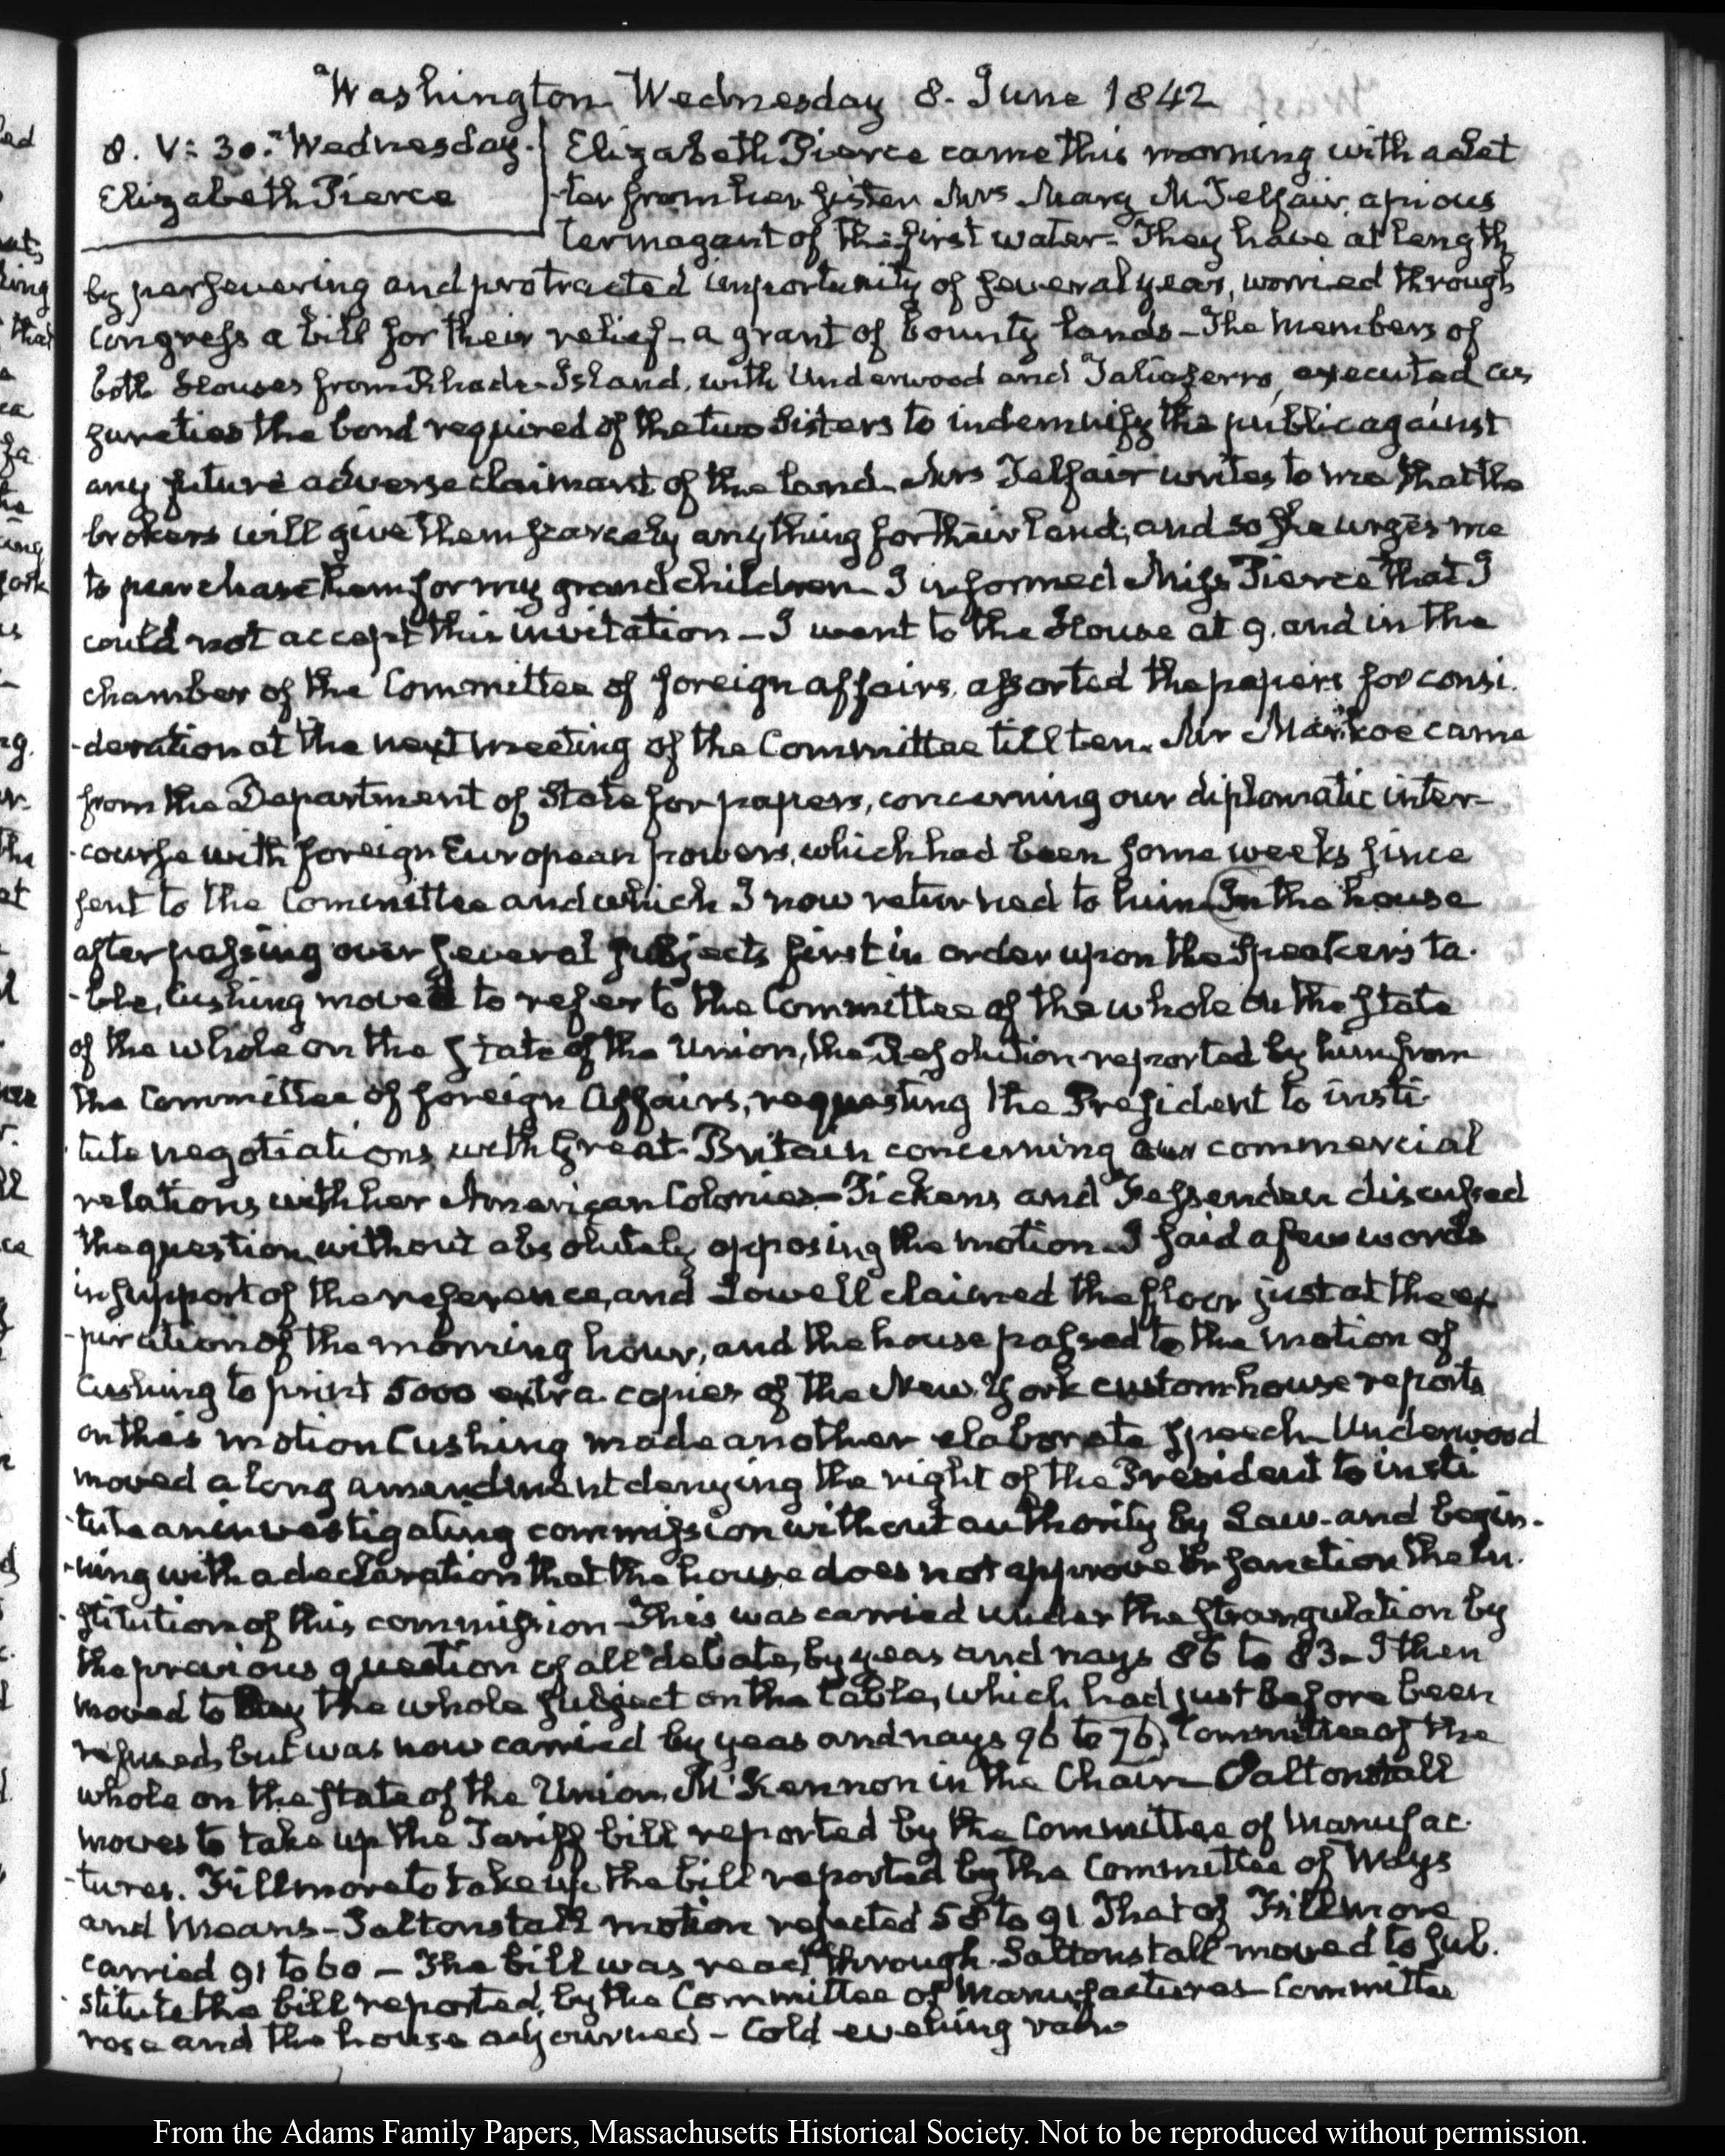 Washington Wednesday 8. June 1842
8. V: 30. Wednesday.
Elizabeth Pierce
Elizabeth Pierce came this morning with a Let
-ter from her sister Mrs Mary M Telfair, a pious
termagant of the first water. They have at length
by persevering and protracted importunity of several years, worried through
Congress a bill for their relief - a grant of bounty lands - The members of
both Houses from Rhode-Island, with Underwood and Taliaferro, executed as
sureties the bond required of the two Sisters to indemnify the public against
any future adverse claimant of the land - Mrs Telfair writes to me that the
brokers will give them scarcely any thing for their land; and so she urges me
to purchase them for my grandchildren - I informed Miss Pierce that I
could not accept this invitation - I went to the House at 9. and in the
chamber of the Committee of foreign affairs, assorted the papers for consi.
-deration at the next meeting of the Committee till ten. Mr Markoe came
from the Department of State for papers, concerning our diplomatic inter-
-course with foreign European powers, which had been some weeks since
sent to the Committee and which I now returned to him (In the house
after passing over several subjects first in order upon the Speaker's ta.
-ble, Cushing moved to refer to the Committee of the whole on the state
of the whole on the state of the Union, the Resolution reported by him from
the Committee of foreign Affairs, requesting the President to insti.
tute negotiations with Great-Britain concerning our commercial
relations with her American Colonies - Pickens and Fessenden discussed
the question without absolutely opposing the motion. I said a few words
in support of the reference, and Lowell claimed the floor just at the ex
-piration of the morning hour, and the house passed to the motion of
Cushing to print 5000 extra copies of the New-York custom-house reports
on this motion Cushing made another elaborate speech - Underwood
moved a long amendment denying the right of the President to insti
-tute an investigating commission without authority by Law - and begin.
-ning with a declaration that the house does not approve or sanction the in.
-stitution of this commission - This was carried under the strangulation by
the previous question of all debate, by yeas and nays 86 to 83 - I then
moved to lay the whole subject on the table, which had just before been
refused, but was now carried by yeas and nays 96 to 76) Committee of the
whole on the state of the Union, McKennon in the Chair - Saltonstall
moves to take up the Tariff bill reported by the Committee of Manufac.
-tures. Fillmore to take up the bill reported by the Committee of Ways
and Means - Saltonstall motion rejected 58 to 91 That of Fillmore
carried 91 to 60 - The bill was read through. Saltonstall moved to sub.
-stitute the bill reported by the Committee of Manufactures - Committee
rose and the house adjourned - Cold evening rain
From the Adams Family Papers, Massachusetts Historical Society. Not to be reproduced without permission.